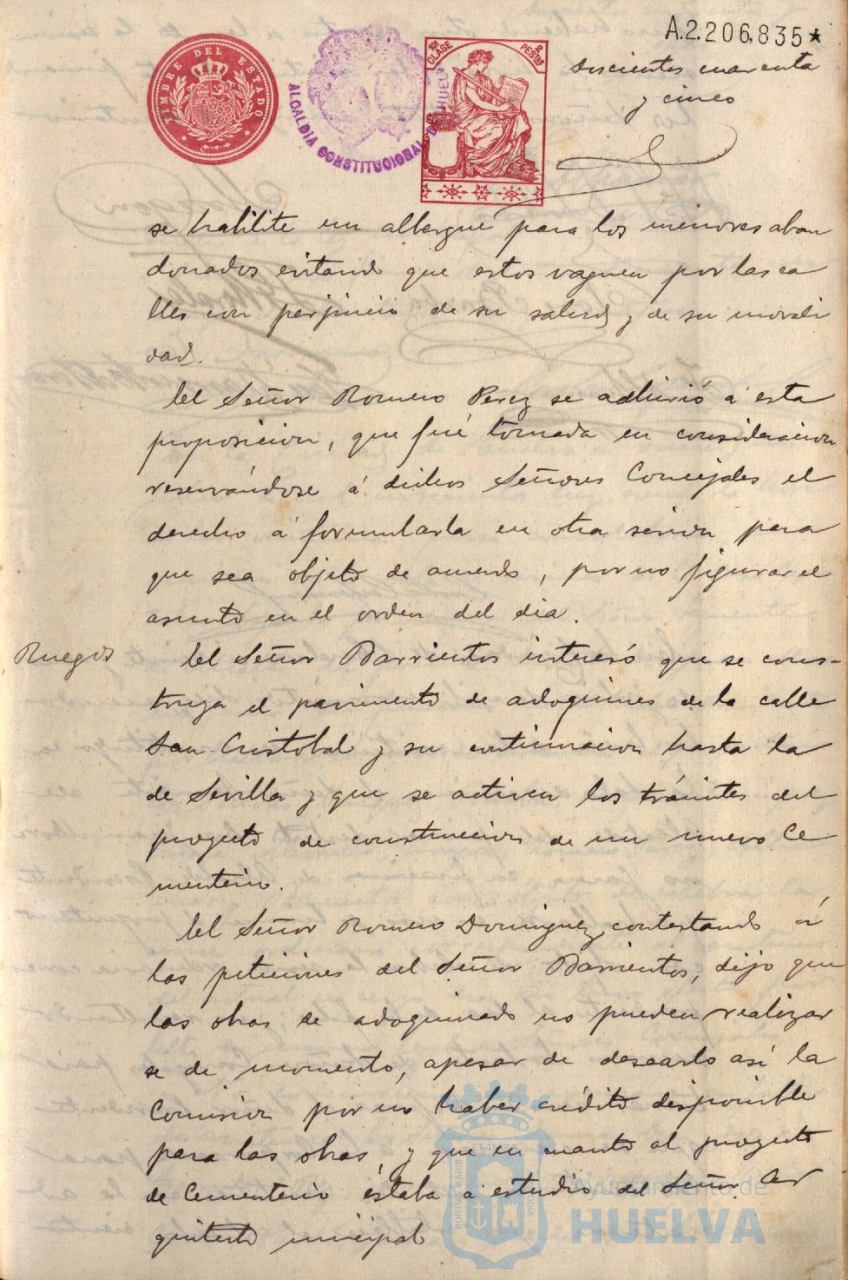 A.2.206,835*
TIMBRE DEL ESTADO
ALCALDIA CONSTITUCIONAL DE HUELVA
CLASE
PESETAS
seiscientos cuarenta
y cinco
se habilite un albergue para los menores aban
donados evitando que estos vaguen por las ca
lles con perjuicio de su salud y de su morali
dad.
El Señor Romero Perez se adhirió á esta
proposicion, que fué tomada en consideracion
reservándose á dichos Señores Concejales el
derecho á formularla en otra sesion para
que sea objeto de acuerdo, por no figurar el
asunto en el orden del dia.
Ruegos
El Señor Barrientos interesó que se cons-
truya el pavimento de adoquines de la calle
San Cristobal y su continuacion hasta la
de Sevilla y que se activen los trámites del
proyecto de construccion de un nuevo Ce
menterio.
El Señor Romero Dominguez, contestando á
las peticiones del Señor Barrientos, dijo que
las obras de adoquinado no pueden realizar
se de momento, apesar de desearlo así la
Comision por no haber crédito disponible
para las obras, y que en cuanto al proyecto
de Cementerio estaba á estudio del Señor Ar
quitecto municipal
Ayuntamiento de
HUELVA